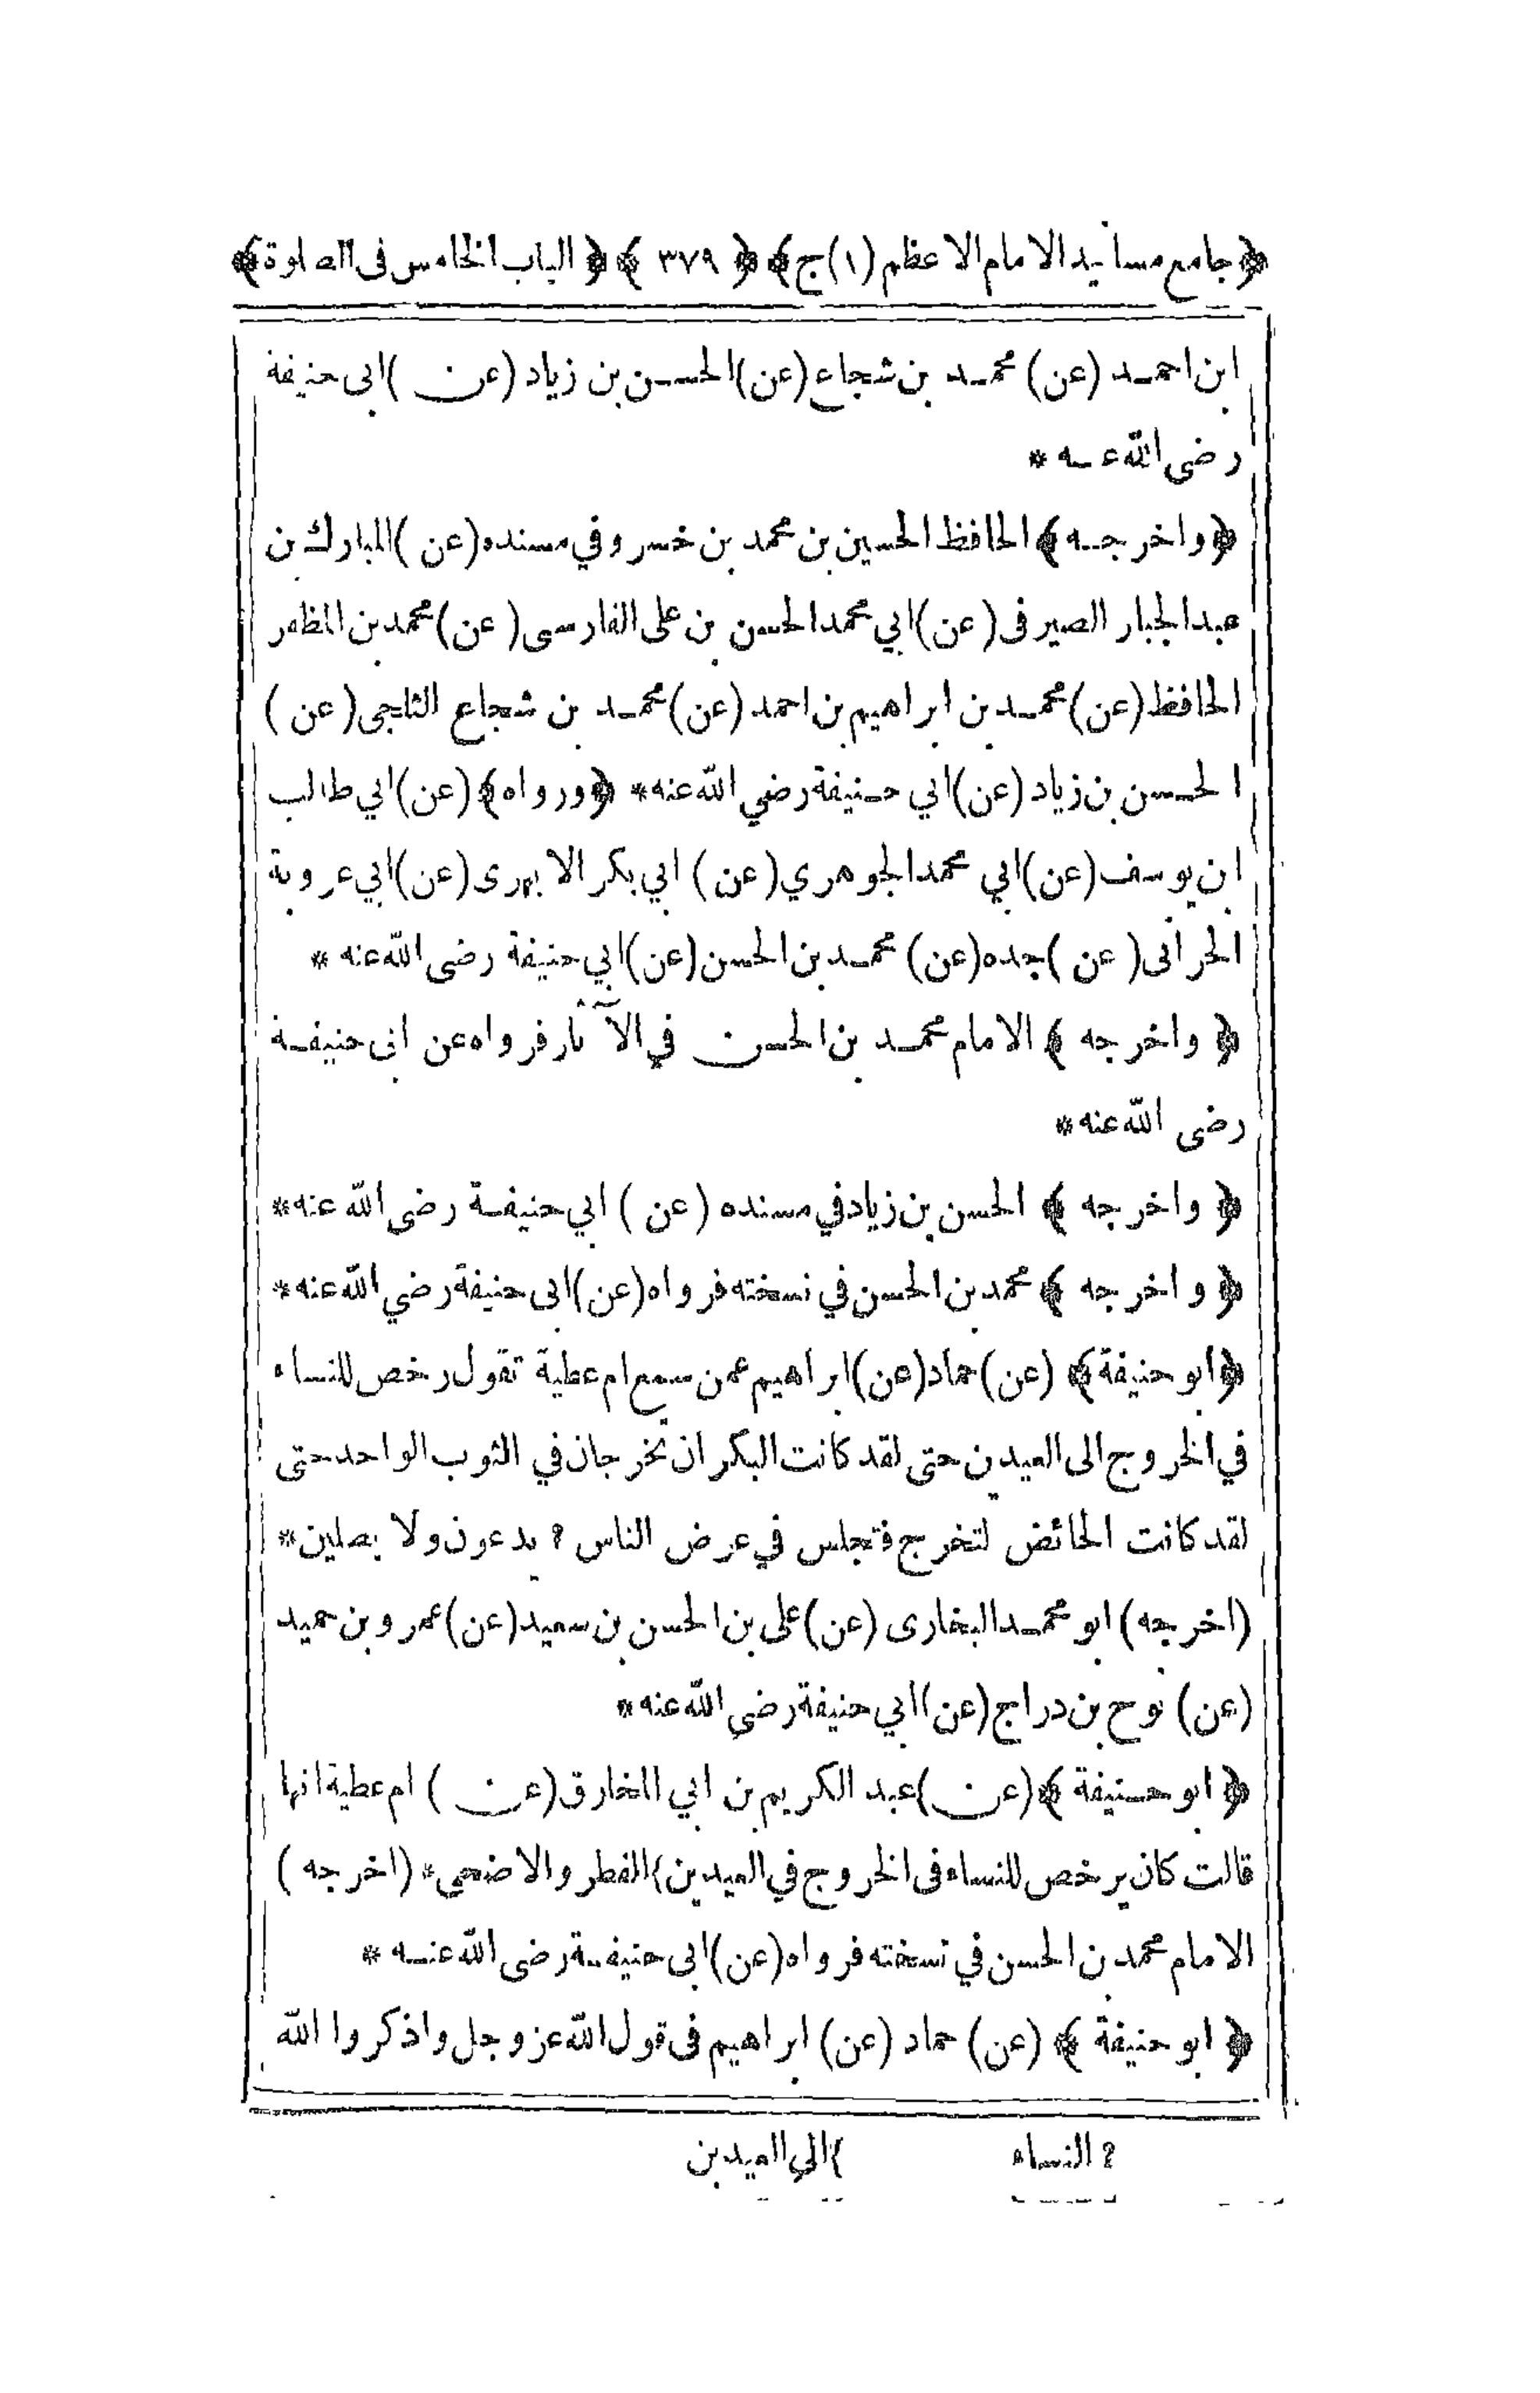 ﴿جامع مسانيد الامام الاعظم (١) ج﴾ ﴿ ٣٧٩ ﴾ ﴿الباب الخامس فى الصلوة﴾
ابن احمد (عن) محمد بن شجاع (عن) الحسن بن زياد (عن) ابى حنيفة
رضى الله عنه *
﴿واخرجه﴾ الحافظ الحسين بن محمد بن خسرو في مسنده (عن) المبارك بن
عبد الجبار الصيرفى (عن) ابي محمد الحسن بن على الفارسى (عن) محمد بن المظفر
الحافظ (عن) محمد بن ابراهيم بن احمد (عن) محمد بن شجاع الثلجى (عن)
الحسن بن زياد (عن) ابي حنيفة رضي الله عنه * ﴿ورواه﴾ (عن) ابي طالب
ابن يوسف (عن) ابي محمد الجوهري (عن) ابي بكر الابهرى (عن) ابي عروبة
الحرانى (عن) جده (عن) محمد بن الحسن (عن) ابي حنيفة رضى الله عنه *
﴿ واخرجه ﴾ الامام محمد بن الحسن في الآثار فرواه عن ابى حنيفة
رضى الله عنه *
﴿ واخرجه ﴾ الحسن بن زياد في مسنده (عن) ابي حنيفة رضى الله عنه *
﴿ واخرجه ﴾ محمد بن الحسن في نسخته فرواه (عن) ابى حنيفة رضي الله عنه *
﴿ابو حنيفة﴾ (عن) حماد (عن) ابراهيم عمن سمع ام عطية تقول رخص للنساء
في الخروج الى العيدين حتى لقد كانت البكران تخرجان في الثوب الواحد حتى
لقد كانت الحائض لتخرج فتجلس في عرض الناس ? يدعون ولا يصلين *
(اخرجه) ابو محمد البخارى (عن) على بن الحسن بن سعيد (عن) عمرو بن حميد
(عن) نوح بن دراج (عن) ابي حنيفة رضي الله عنه *
﴿ ابو حنيفة ﴾ (عن) عبد الكريم بن ابي المخارق (عن) ام عطية انها
قالت كان يرخص للنساء فى الخروج في العيدين } الفطر والاضحى * (اخرجه)
الامام محمد بن الحسن في نسخته فرواه (عن) ابى حنيفة رضى الله عنه *
﴿ ابو حنيفة ﴾ (عن) حماد (عن) ابراهيم فى قول الله عز وجل واذكروا الله
? النساء } الي العيدين